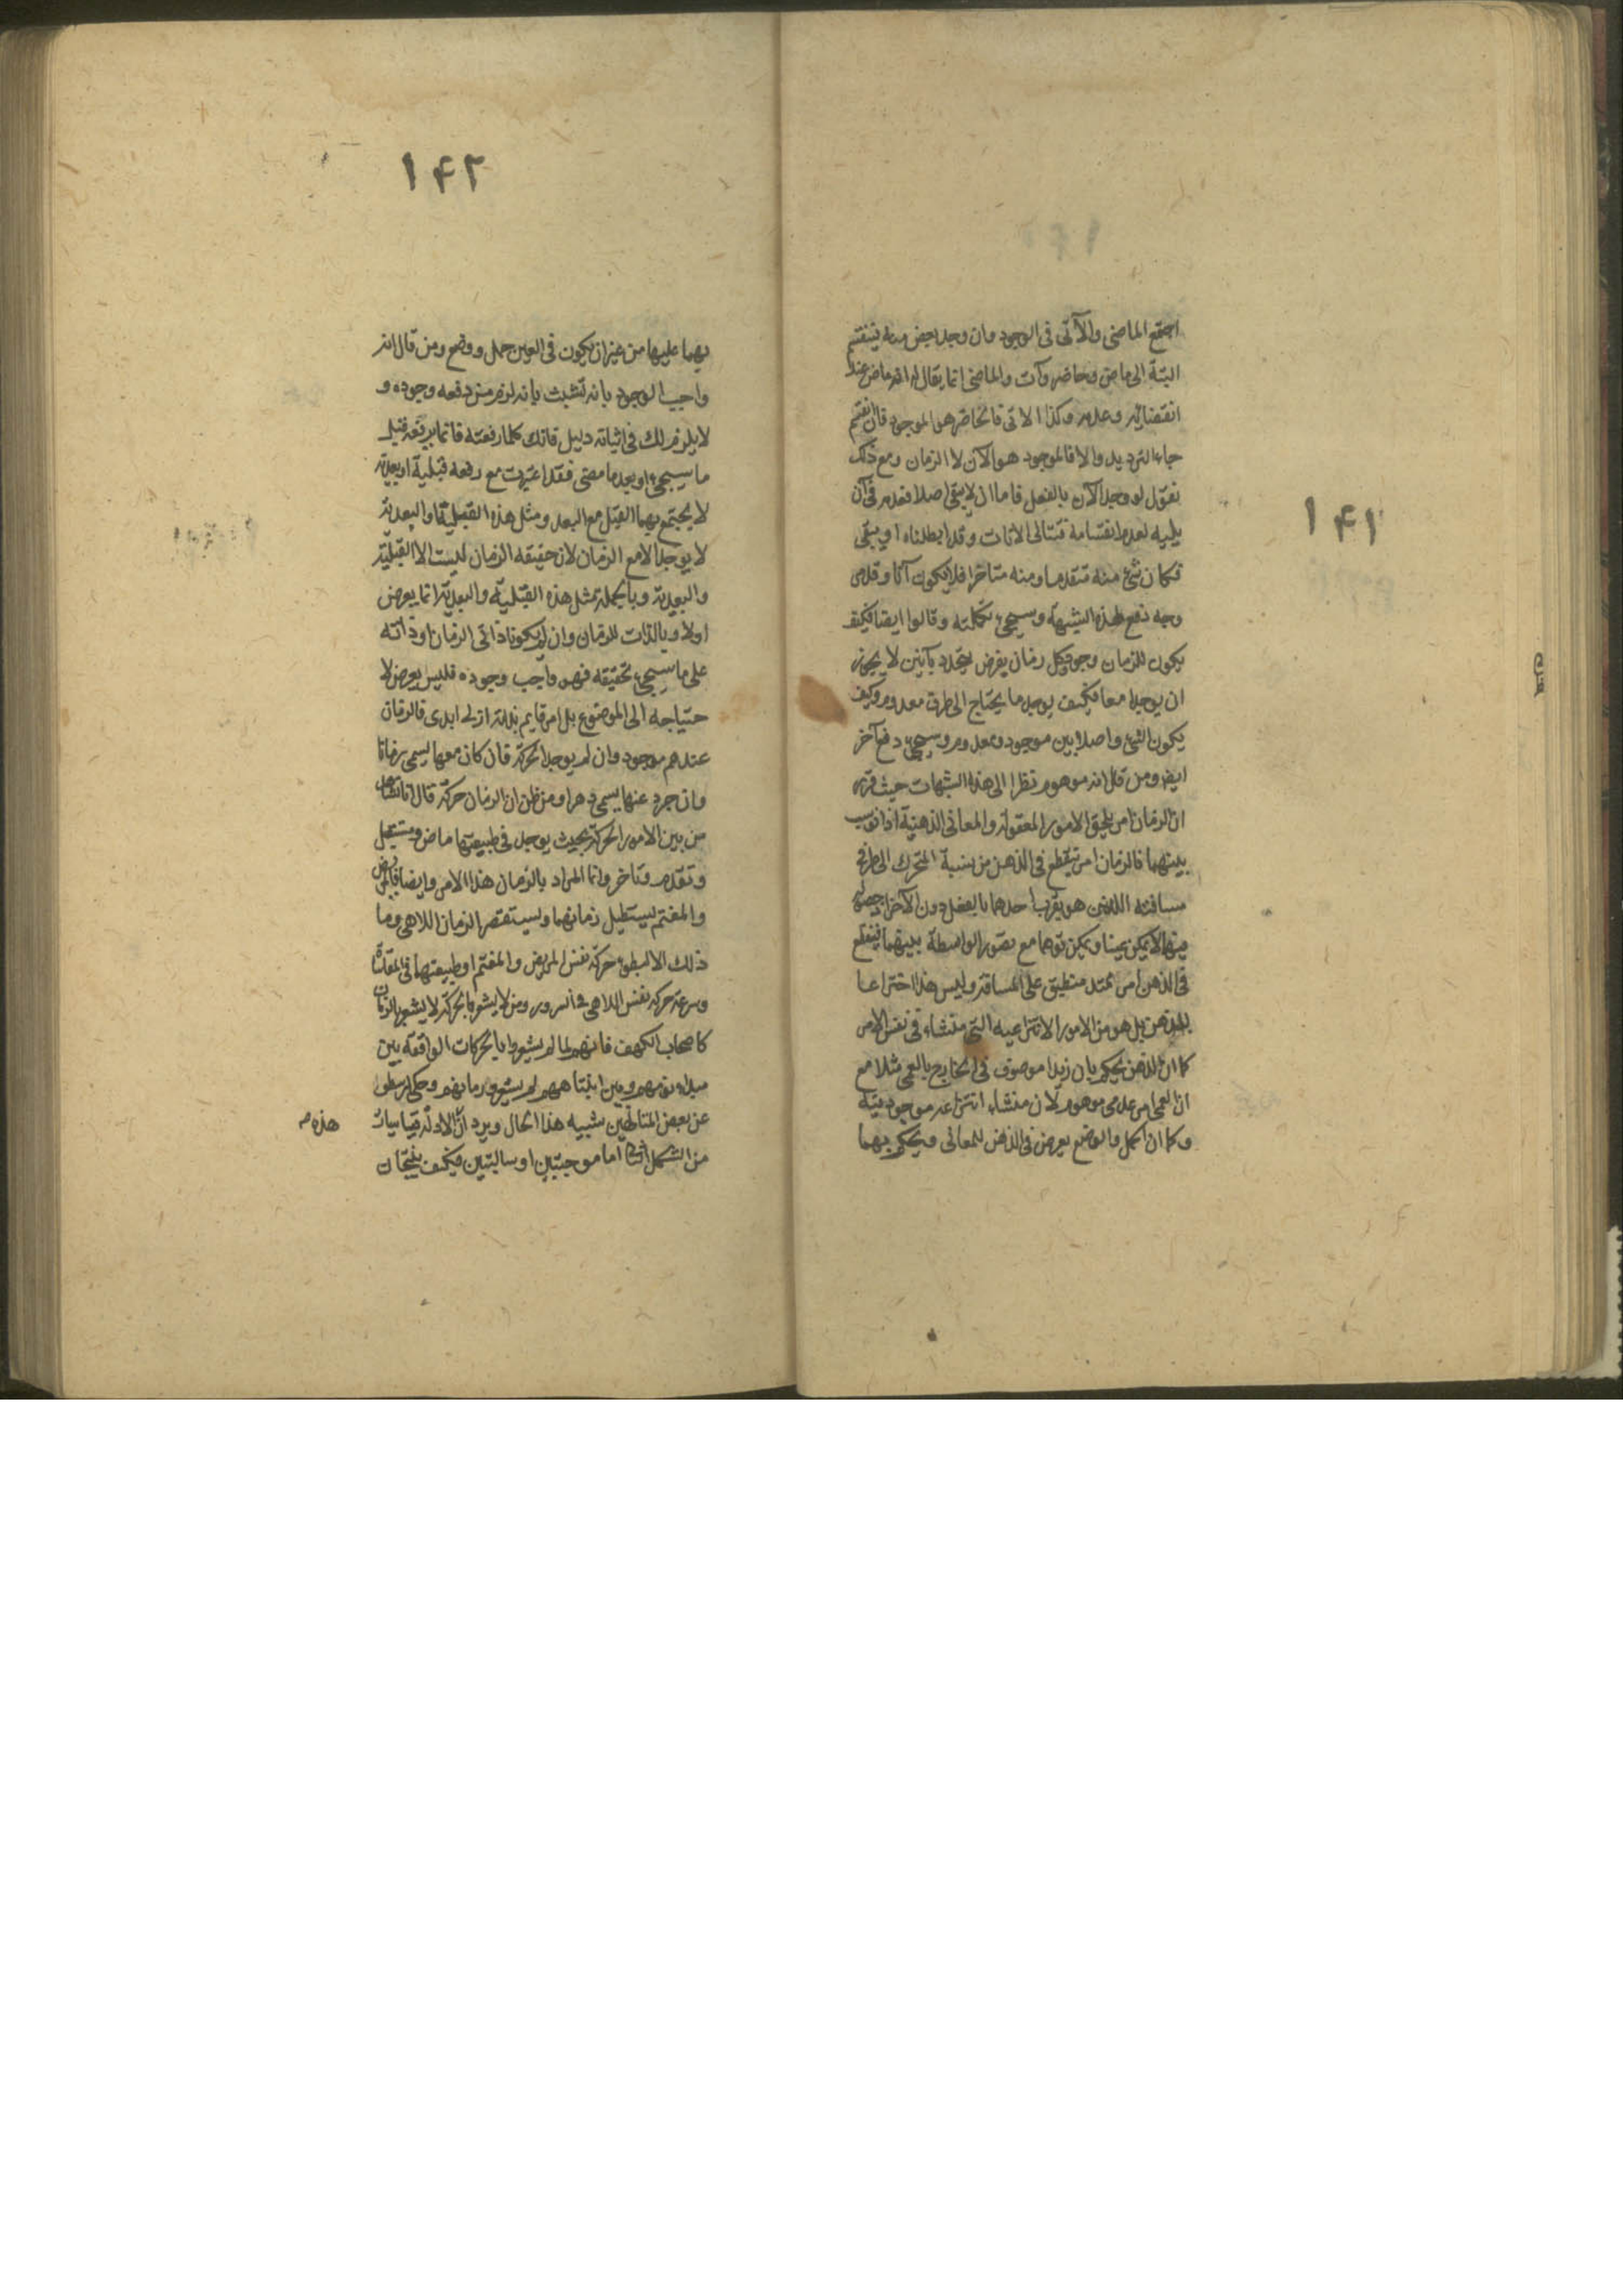 ١٤١
اجتمع الماضى والآتى فى الوجود وان وجد بعض منه ينقسم
البتة الى ماض وحاضر وآت والماضى انما يقال له انه ماض عند
انقضائه وعدمه وكذا الاتى فالحاضر هو الموجود فان انقسم
جاء الترديد والا فالموجود هو الآن لا الزمان ومع ذلك
نقول لو وجد الآن بالفعل فاما ان لا يبقى اصلا فعدمه فى آن
يليه لعدم انقسامه فتتالى الانات وقد ابطلناه او يبقى
فكان شئ منه متقدما ومنه متاخرا فلا يكون آنا وقد مر
وجه دفع هذه الشبهة وسيجئ تكملته وقالوا ايضا فكيف
يكون للزمان وجود وكل زمان يفرض يتحدد بآنين لا يجوز
ان يوجدا معا فكيف يوجد ما يحتاج الى طرف معدوم وكيف
يكون الشئ واصلا بين موجود ومعدوم وسيجئ دفع آخر
ايضا ومن قال انه موهوم نظرا الى هذه الشبهات حيث قرر
ان الزمان امر يلحق الامور المعقولة والمعانى الذهنية اذا نوسب
بينهما فالزمان امر ينطبع فى الذهن من نسبة المتحرك الى طرفى
مسافته اللذين هو بقرب احدهما بالفعل دون الآخر اذ حصوله
فيهما لا يمكن عينا ويمكن توهما مع تصور الواسطة بينهما فينطبع
فى الذهن امر ممتد منطبق على المسافة وليس هذا اختراعا
للذهن بل هو من الامور الانتزاعيه التى منشاءه فى نفس الامر
كما ان الذهن يحكم بان زيدا موصوف فى الخارج بالعمى مثلا مع
ان العمى امر عدمى موهوم لان منشاء انتزاعه موجود فيه
وكما ان الحمل والوضع يعرض فى الذهن للمعانى ويحكم بهما
١٤٢
بهما عليها من غير ان يكون فى العين حمل ووضع ومن قال انه
واجب الوجود بانه تشبث بانه لزم من دفعه وجوده و
لا يلزم لك فى اثباته دليل فانك كلما رفعته فانما يرفعه قبل
ما سيجئ او بعد ما مضى فقد اعتبرت مع رفعه قبلية او بعدية
لا يجتمع بهما القبل مع البعد ومثل هذه القبلية والبعدية
لا يوجد الا مع الزمان لان حقيقه الزمان ليست الا القبلية
والبعدية وبالجملة بمثل هذه القبلية والبعدية انما يعرض
اولا وبالذات للزمان وان لم يكونا ذاتى الزمان او ذاته
على ما سيجئ تحقيقه فهو واجب وجوده فليس يعرض لا
حتياجه الى الموضوع بل امر قايم بذاته ازلى ابدى فالزمان
عندهم موجود وان لم يوجد الحركة فان كان معها يسمى زمانا
وان جرد عنها يسمى دهرا ومن ظن ان الزمان حركة قال انا نشاهد
من بين الامور الحركة بحيث يوجد فى طبيعتها ماض ومستقبل
وتقدم وتاخر وانما المراد بالزمان هذا الامر وايضا فالمريض
والمغتم يستطيل زمانهما ويستقصر الزمان اللاهى وما
ذلك الا لبطوء حركة نفس المريض والمغتم او طبيعتهما فى المقاساة
وسرعة حركة نفس اللاهى فى السرور ومن لا يشعر بالحركة لا يشعر بالزمان
كاصحاب الكهف فانهم لما لم يشعروا بالحركات الواقعة بين
مبداء نومهم وبين انتباههم لم يشعروا زمانهم وحكى ارسطو
عن بعض المتالهين شبيه هذا الحال ويرد ان الادلة قياسات
هذه م
من الشكل الثانى اما موجبتين او سالبتين فكيف ينتجان